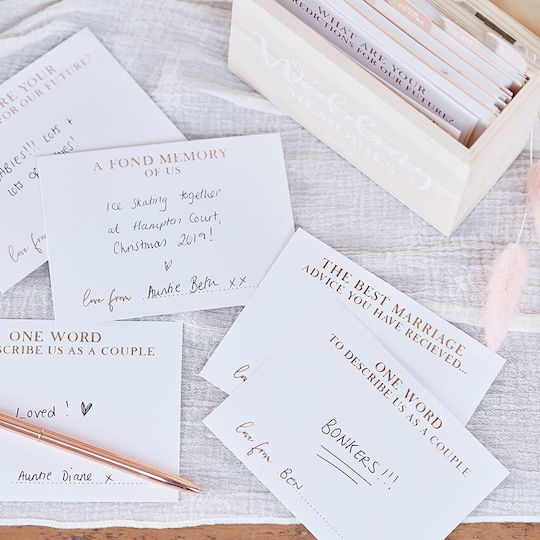 RE YOUR
FOR OUR FUTURE?
ABIES!!! Lots +
lots of
love from
A FOND MEMORY
OF US
Ice Skating together
at Hampton Court,
Christmas 2019!
love from Auntie Beth xx
ONE WORD
SCRIBE US AS A COUPLE
Loved!
Auntie Diane x
WHAT ARE YOUR
PREDICTIONS FOR OUR FUTURE?
Wedding
MEMORIES
THE BEST MARRIAGE
ADVICE YOU HAVE RECIEVED...
ONE WORD
TO DESCRIBE US AS A COUPLE
BONKERS!!!
love from Ben